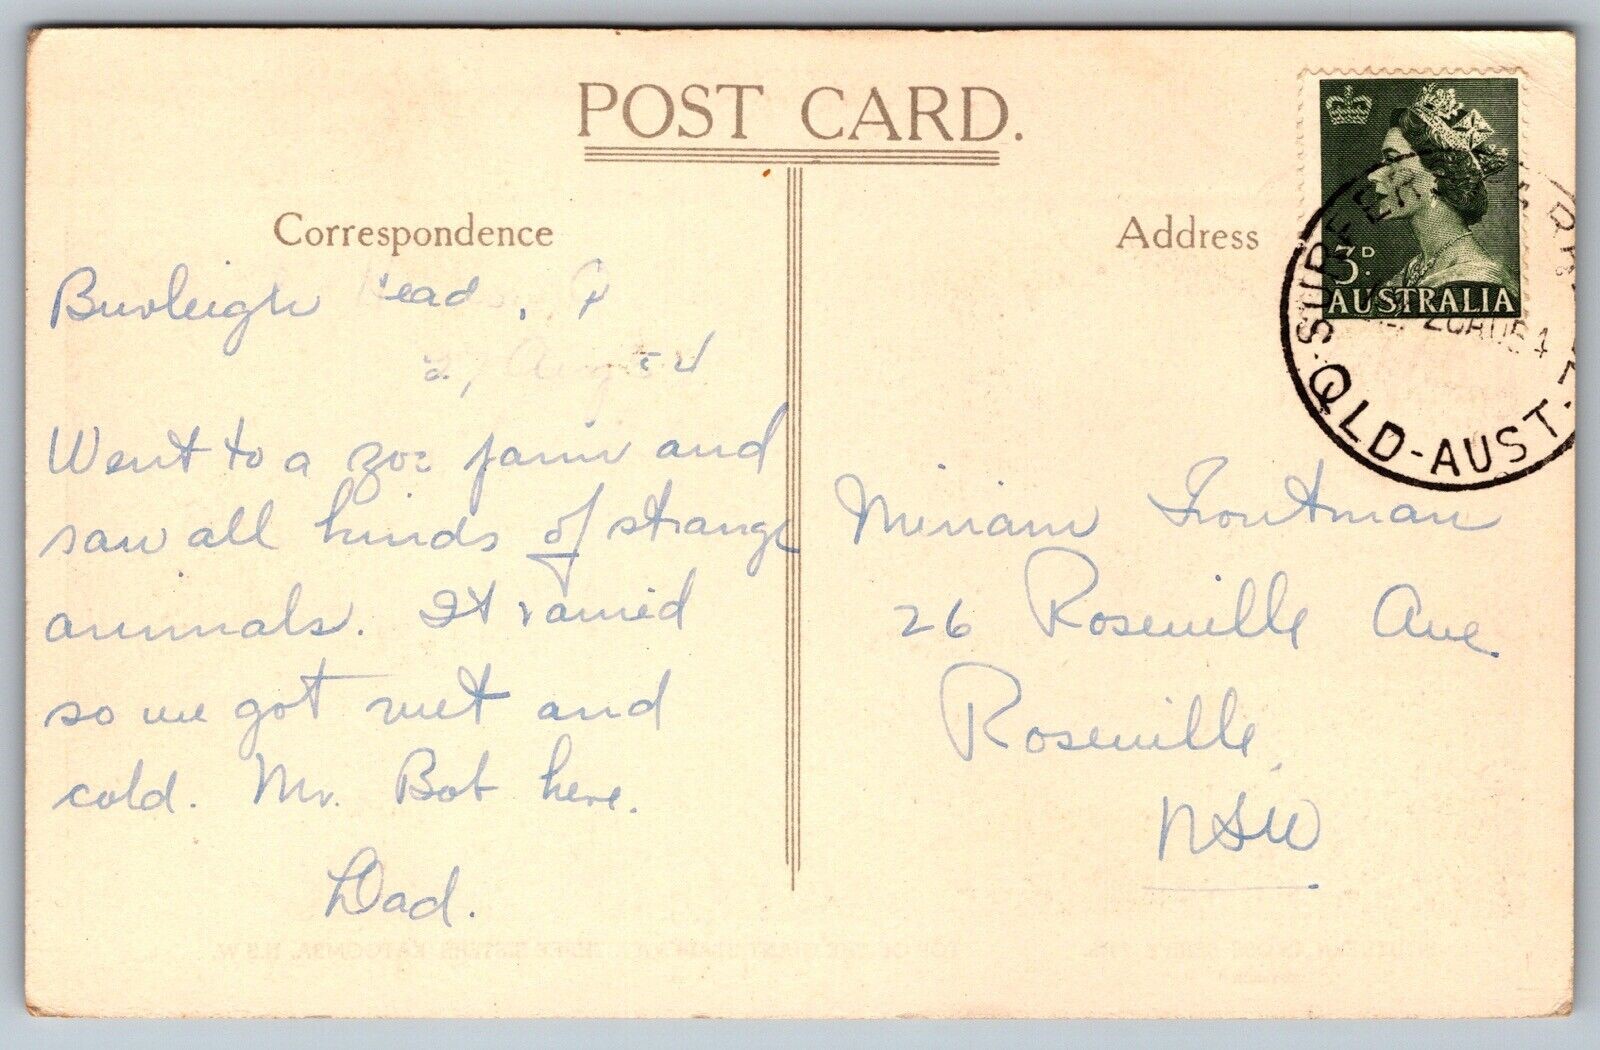 POST CARD.
Correspondence
Address
3D.
AUSTRALIA
QLD-AUST.
Burleigh Head,
Went to a zoo farm and
saw all kinds of strange
animals. It rained
so we got wet and
cold. Mr. Bot here.
Dad.
Miriam Troutman
26 Roseville Ave
Roseville,
NSW